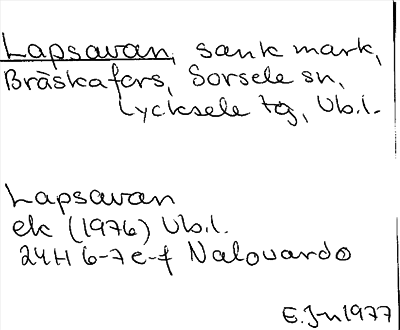 Lapsavan, sank mark,
Bräskafors, Sorsele sn,
Lycksele tg, Vb.l.
Lapsavan
ek (1976) Vb.l.
24H 6-7 e-f Nalovardo
E.Jn 1977